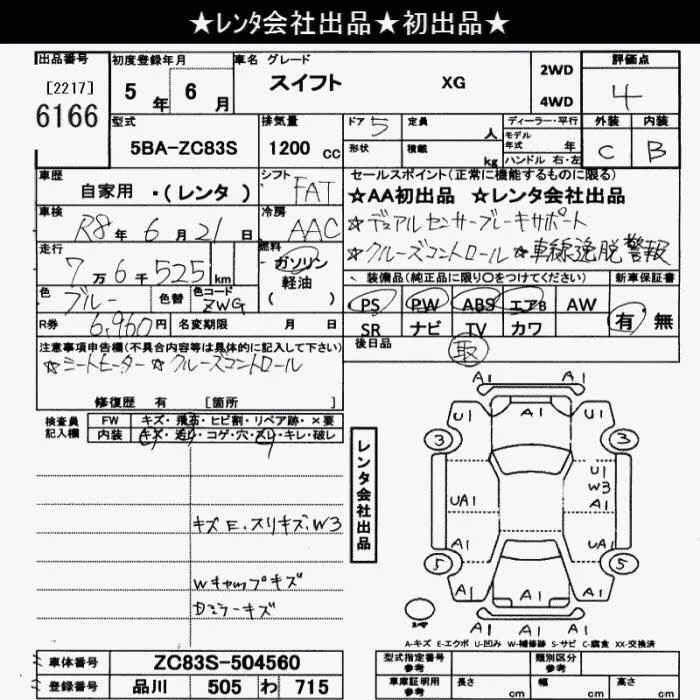 ★レンタ会社出品★初出品★
出品番号 初度登録年月 車名 グレード 評価点
[2217] 5年 6月 スイフト XG 2WD 4
6166 4WD
型式 排気量 ドア 5 定員 人 ディーラー・平行 外装 内装
5BA-ZC83S 1200cc 形状 積載 kg モデル年式 年 C B
ハンドル 右・左
車歴 シフト セールスポイント(正常に機能するものに限る)
自家用・(レンタ) FAT ☆AA初出品 ☆レンタ会社出品
車検 冷房 ☆デュアルセンサーブレーキサポート
R8年 6月 21日 AAC ☆クルーズコントロール ☆車線逸脱警報
走行 燃料 装備品(純正品に限り○をつけてください) 新車保証書
7万6千525km ガソリン PS PW ABS エアB AW 有・無
軽油 SR ナビ TV カワ
( )
色 色替 色コード
ブルー ZWG
R券 6,960円 名変期限 月 日 後日品 取
注意事項申告欄(不具合内容等は具体的に記入して下さい)
☆シートヒーター ☆クルーズコントロール
修復歴 有 [箇所 ]
検査員記入欄 FW キズ・飛石・ヒビ割・リペア跡・×要
内装 キズ・汚レ・コゲ・穴・スレ・キレ・破レ
キズ E.スリキズ.W3
Wキャップキズ
Dミラーキズ
レンタ会社出品
A1
U1 A1 U1
3 3
U1
W3
UA1 A1
UA1
5 5
A1 A1 A1
A1 A1 A1
A-キズ E-エクボ U-凹み W-補修跡 S-サビ C-腐食 XX-交換済
車体番号 ZC83S-504560 型式指定番号 類別区分
参考 参考
登録番号 品川 505 わ 715 車庫証明用 参考 長さ cm 幅 cm 高さ cm